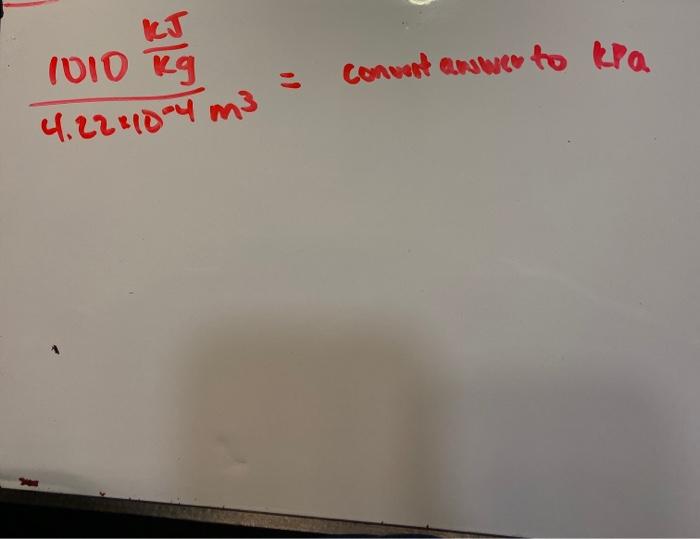 1010 kJ/kg
4.22×10⁻⁴ m³ = convert answer to kPa